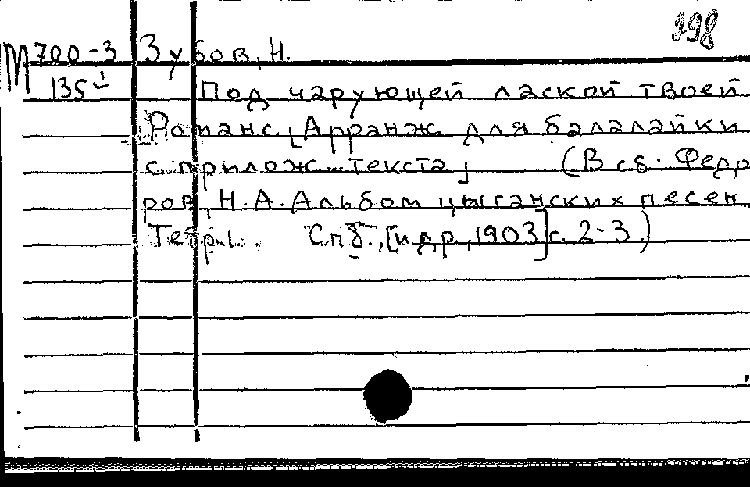 398
М 700-3 Зубов, Н.
135¹ Под чарующей лаской твоей
Романс. [Арранж. для балалайки
с прилож. текста] (В сб. Федо
ров, Н. А. Альбом цыганских песен.
Тетр. 1. Спб., [и др., 1903] с. 2-3.)